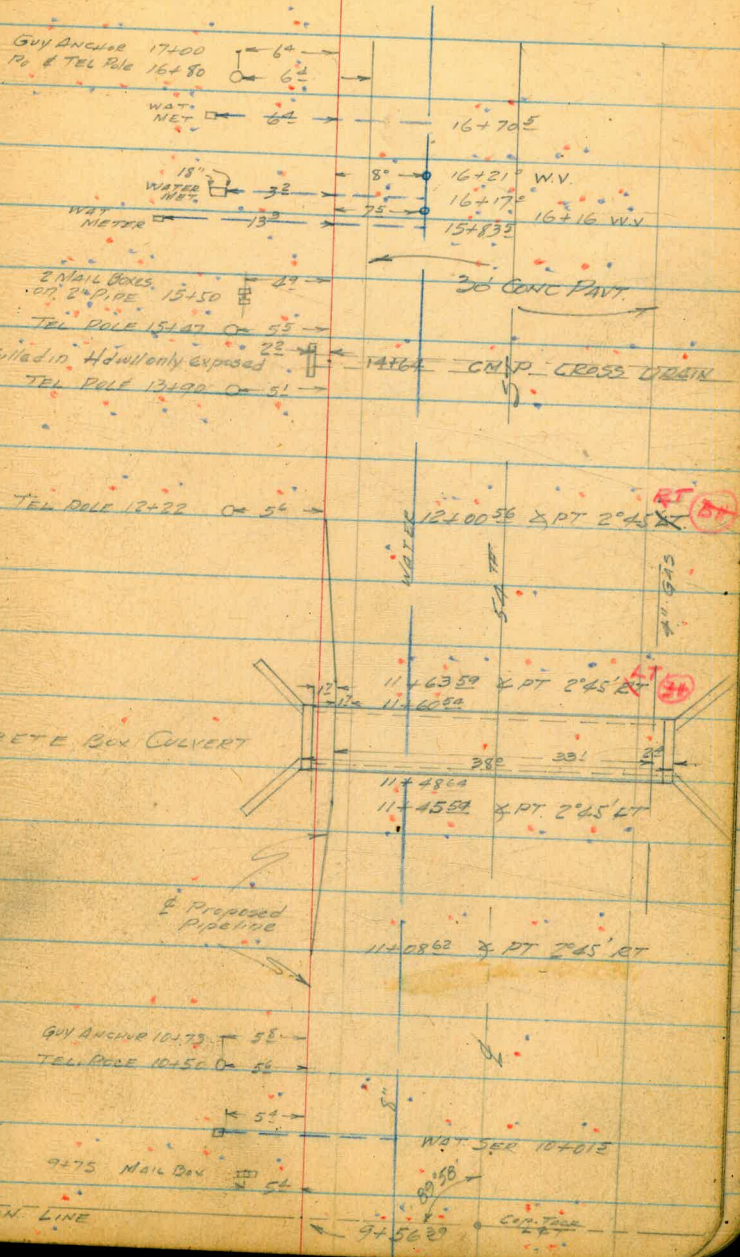 GUY ANCHOR 17+00 6⁴
Po & TEL Pole 16+80 6⁴
WAT. MET 6⁴ 16+70⁵
18"
WATER MET. 3² 8⁰ 16+21⁰ W.V.
16+17⁰
WAT METER 13⁹ 7⁵ 16+16 W.V
15+83⁵
2 MAIL BOXES ON 2" PIPE 15+50 4⁹
30' CONC PAVT.
TEL POLE 15+47 5⁵
2²
Hdwll only exposed 14+64 C.M.P. CROSS DRAIN
TEL POLE 13+90 5¹
TEL POLE 12+22 5⁶ 12+00⁵⁶ ∡ PT 2°45' LT RT
WATER
54TH
4" GAS
11+63⁵⁹ ∡ PT 2°45' RT LT
1⁷ 1⁷ 11+60⁵⁴
BOX CULVERT
38⁰ 33¹
11+48⁶⁴
11+45⁵⁹ ∡ PT. 2°45' LT
₵ Proposed
Pipeline
11+08⁶² ∡ PT 2°45' RT
GUY ANCHOR 10+73 5⁸
TEL. POLE 10+50 5⁶
₵
8"
5⁴
WAT SER 10+01⁵
9+75 MAIL BOX 5⁴
89°58'
LINE 9+56³⁹ COP. TACK